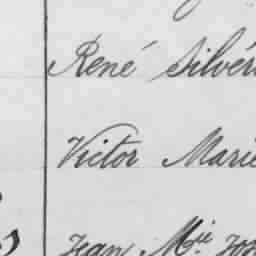 René Silvér
Victor Marie
Jean Mie Jos